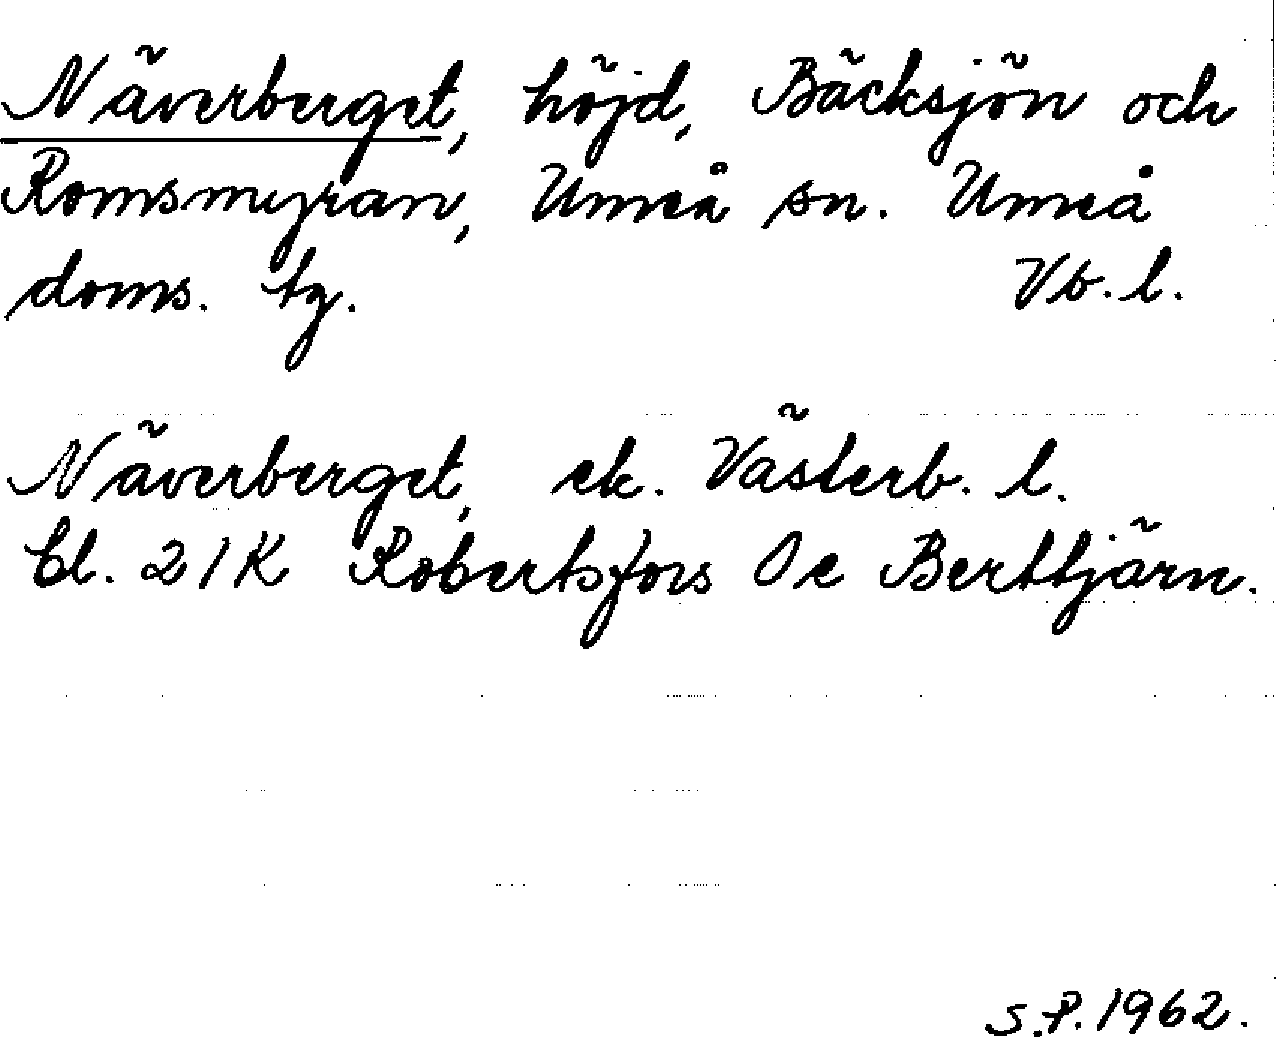 Näverberget, höjd, Bäcksjön och
Romsmyran, Umeå sn. Umeå
doms. tg. Vb. l.
Näverberget, ek. Västerb. l.
bl. 21K Robertsfors 0e Berttjärn.
S.P. 1962.